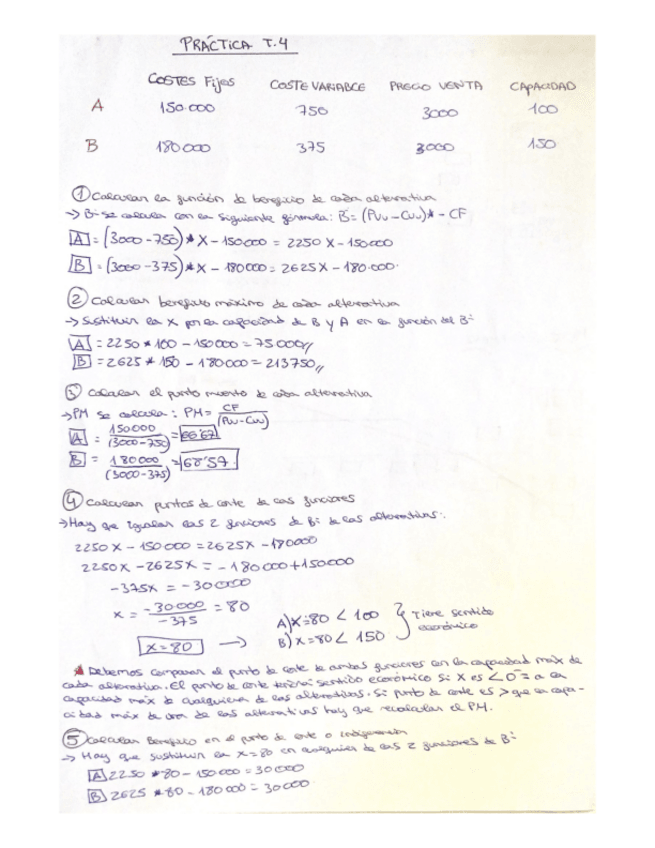 PRÁCTICA T.4
COSTES Fijos COSTE VARIABLE PRECIO VENTA CAPACIDAD
A 150.000 750 3000 100
B 180000 375 3000 150
① Calcular la función de beneficio de cada alternativa
→ Bº se calcula con la siguiente fórmula: Bº=(PVu-CVu)* - CF
A = (3000-750)* X - 150000 = 2250 X - 150000
B = (3000-375)* X - 180000 = 2625X - 180.000.
② Calcular beneficio máximo de cada alternativa
→ Sustituir la X por la capacidad de B y A en la función del Bº
A = 2250 * 100 - 150000 = 75000//
B = 2625 * 150 - 180000 = 213750//
③ Calcular el punto muerto de cada alternativa
→ PM se calcula: PM = CF / (PVu-CVu)
A = 150000 / (3000-750) = 66'67
B = 180000 / (3000-375) = 68'57.
④ Calcular puntos de corte de las funciones
→ Hay que igualar las 2 funciones de Bº de las alternativas:
2250 X - 150000 = 2625X - 180000
2250X - 2625X = -180000+150000
-375X = -30000
X = -30000 / -375 = 80
X=80 →
A) X=80 < 100
B) X=80 < 150
} Tiene sentido económico
* Debemos comparar el punto de corte de ambas funciones con la capacidad máx de
cada alternativa. El punto de corte tendrá sentido económico si X es < o = a la
capacidad máx de cualquiera de las alternativas. Si punto de corte es > que la capa-
cidad máx de una de las alternativas hay que recalcular el PM.
⑤ Calcular Beneficio en el punto de corte o indiferencia
→ Hay que sustituir la X=80 en cualquier de las 2 funciones de Bº
A 2250 * 80 - 150000 = 30000
B 2625 * 80 - 180000 = 30000